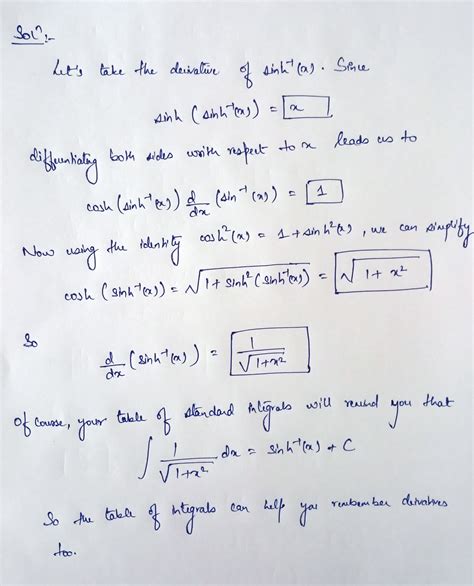 Solⁿ:-
Let's take the derivative of sinh⁻¹(x). Since
sinh (sinh⁻¹(x)) = x
differentiating both sides with respect to x leads us to
cosh (sinh⁻¹(x)) d/dx (sin⁻¹(x)) = 1
Now using the identity cosh²(x) = 1 + sinh²(x), we can simplify
cosh (sinh⁻¹(x)) = √(1 + sinh²(sinh⁻¹(x))) = √(1 + x²)
So
d/dx (sinh⁻¹(x)) = 1/√(1+x²)
Of course, your table of standard integrals will remind you that
∫ 1/√(1+x²) dx = sinh⁻¹(x) + C
So the table of integrals can help you remember derivatives
too.